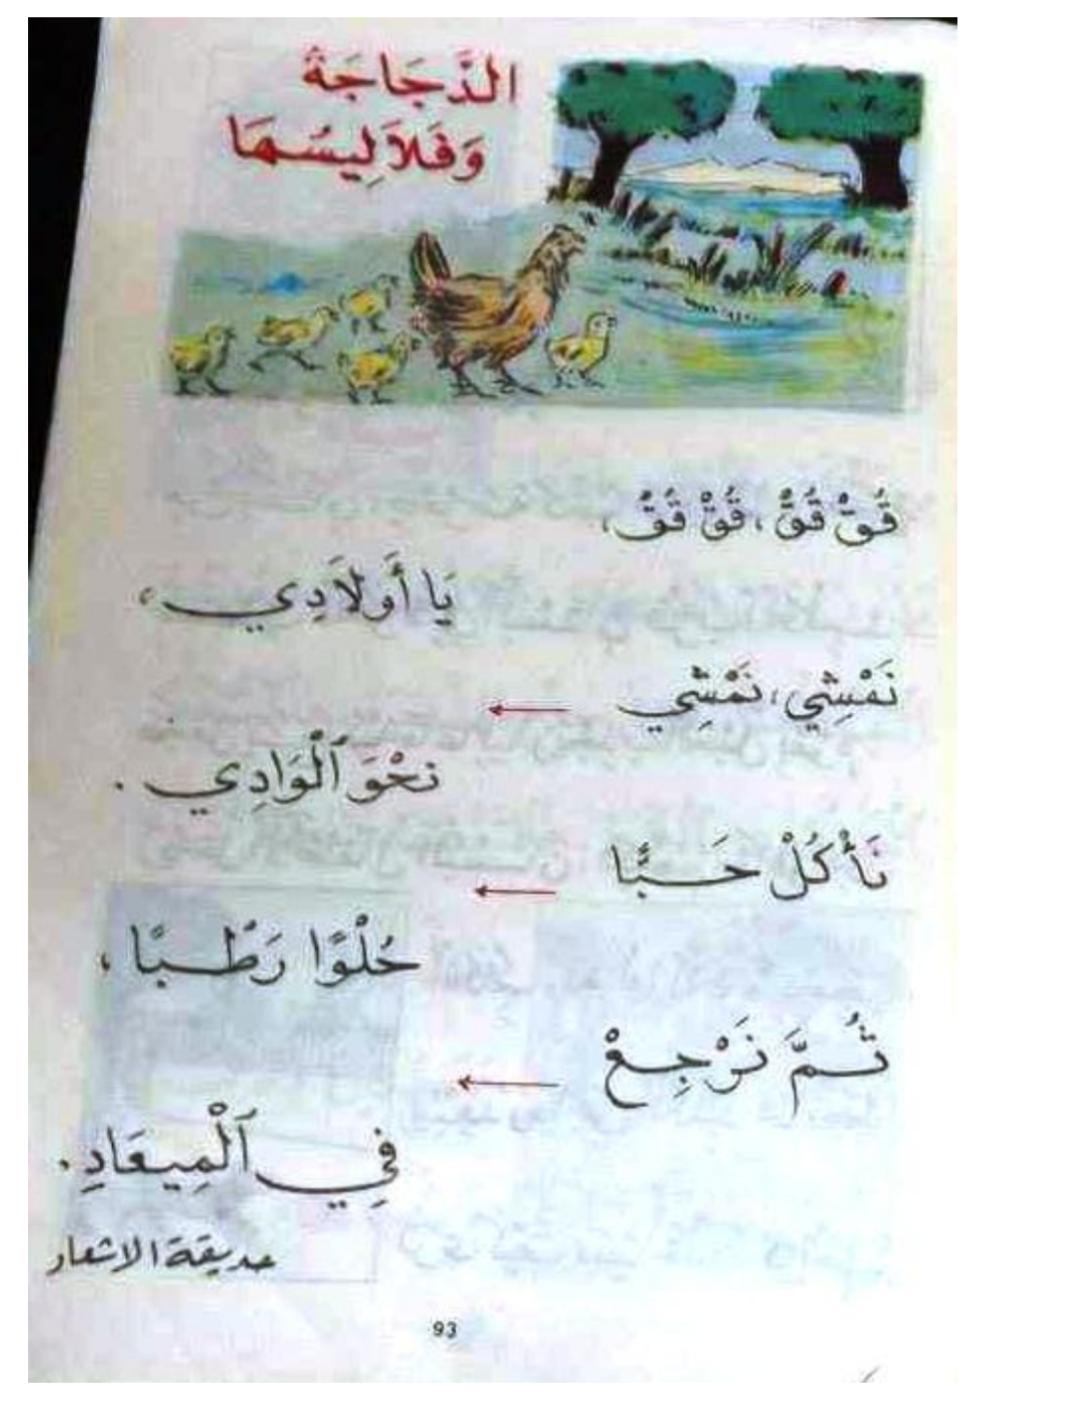 الدَّجَاجَةُ
وَفَلاَلِيسُهَا
قُوقْ قُقْ، قُقْ قُقْ،
يَا أَوْلاَدِي،
نَمْشِي، نَمْشِي
نَحْوَ ٱلْوَادِي.
نَأْكُلْ حَبًّا
حُلْوًا رَطْبًا،
ثُمَّ نَرْجِعْ
فِي ٱلْمِيعَادِ.
حديقة الاشعار
93